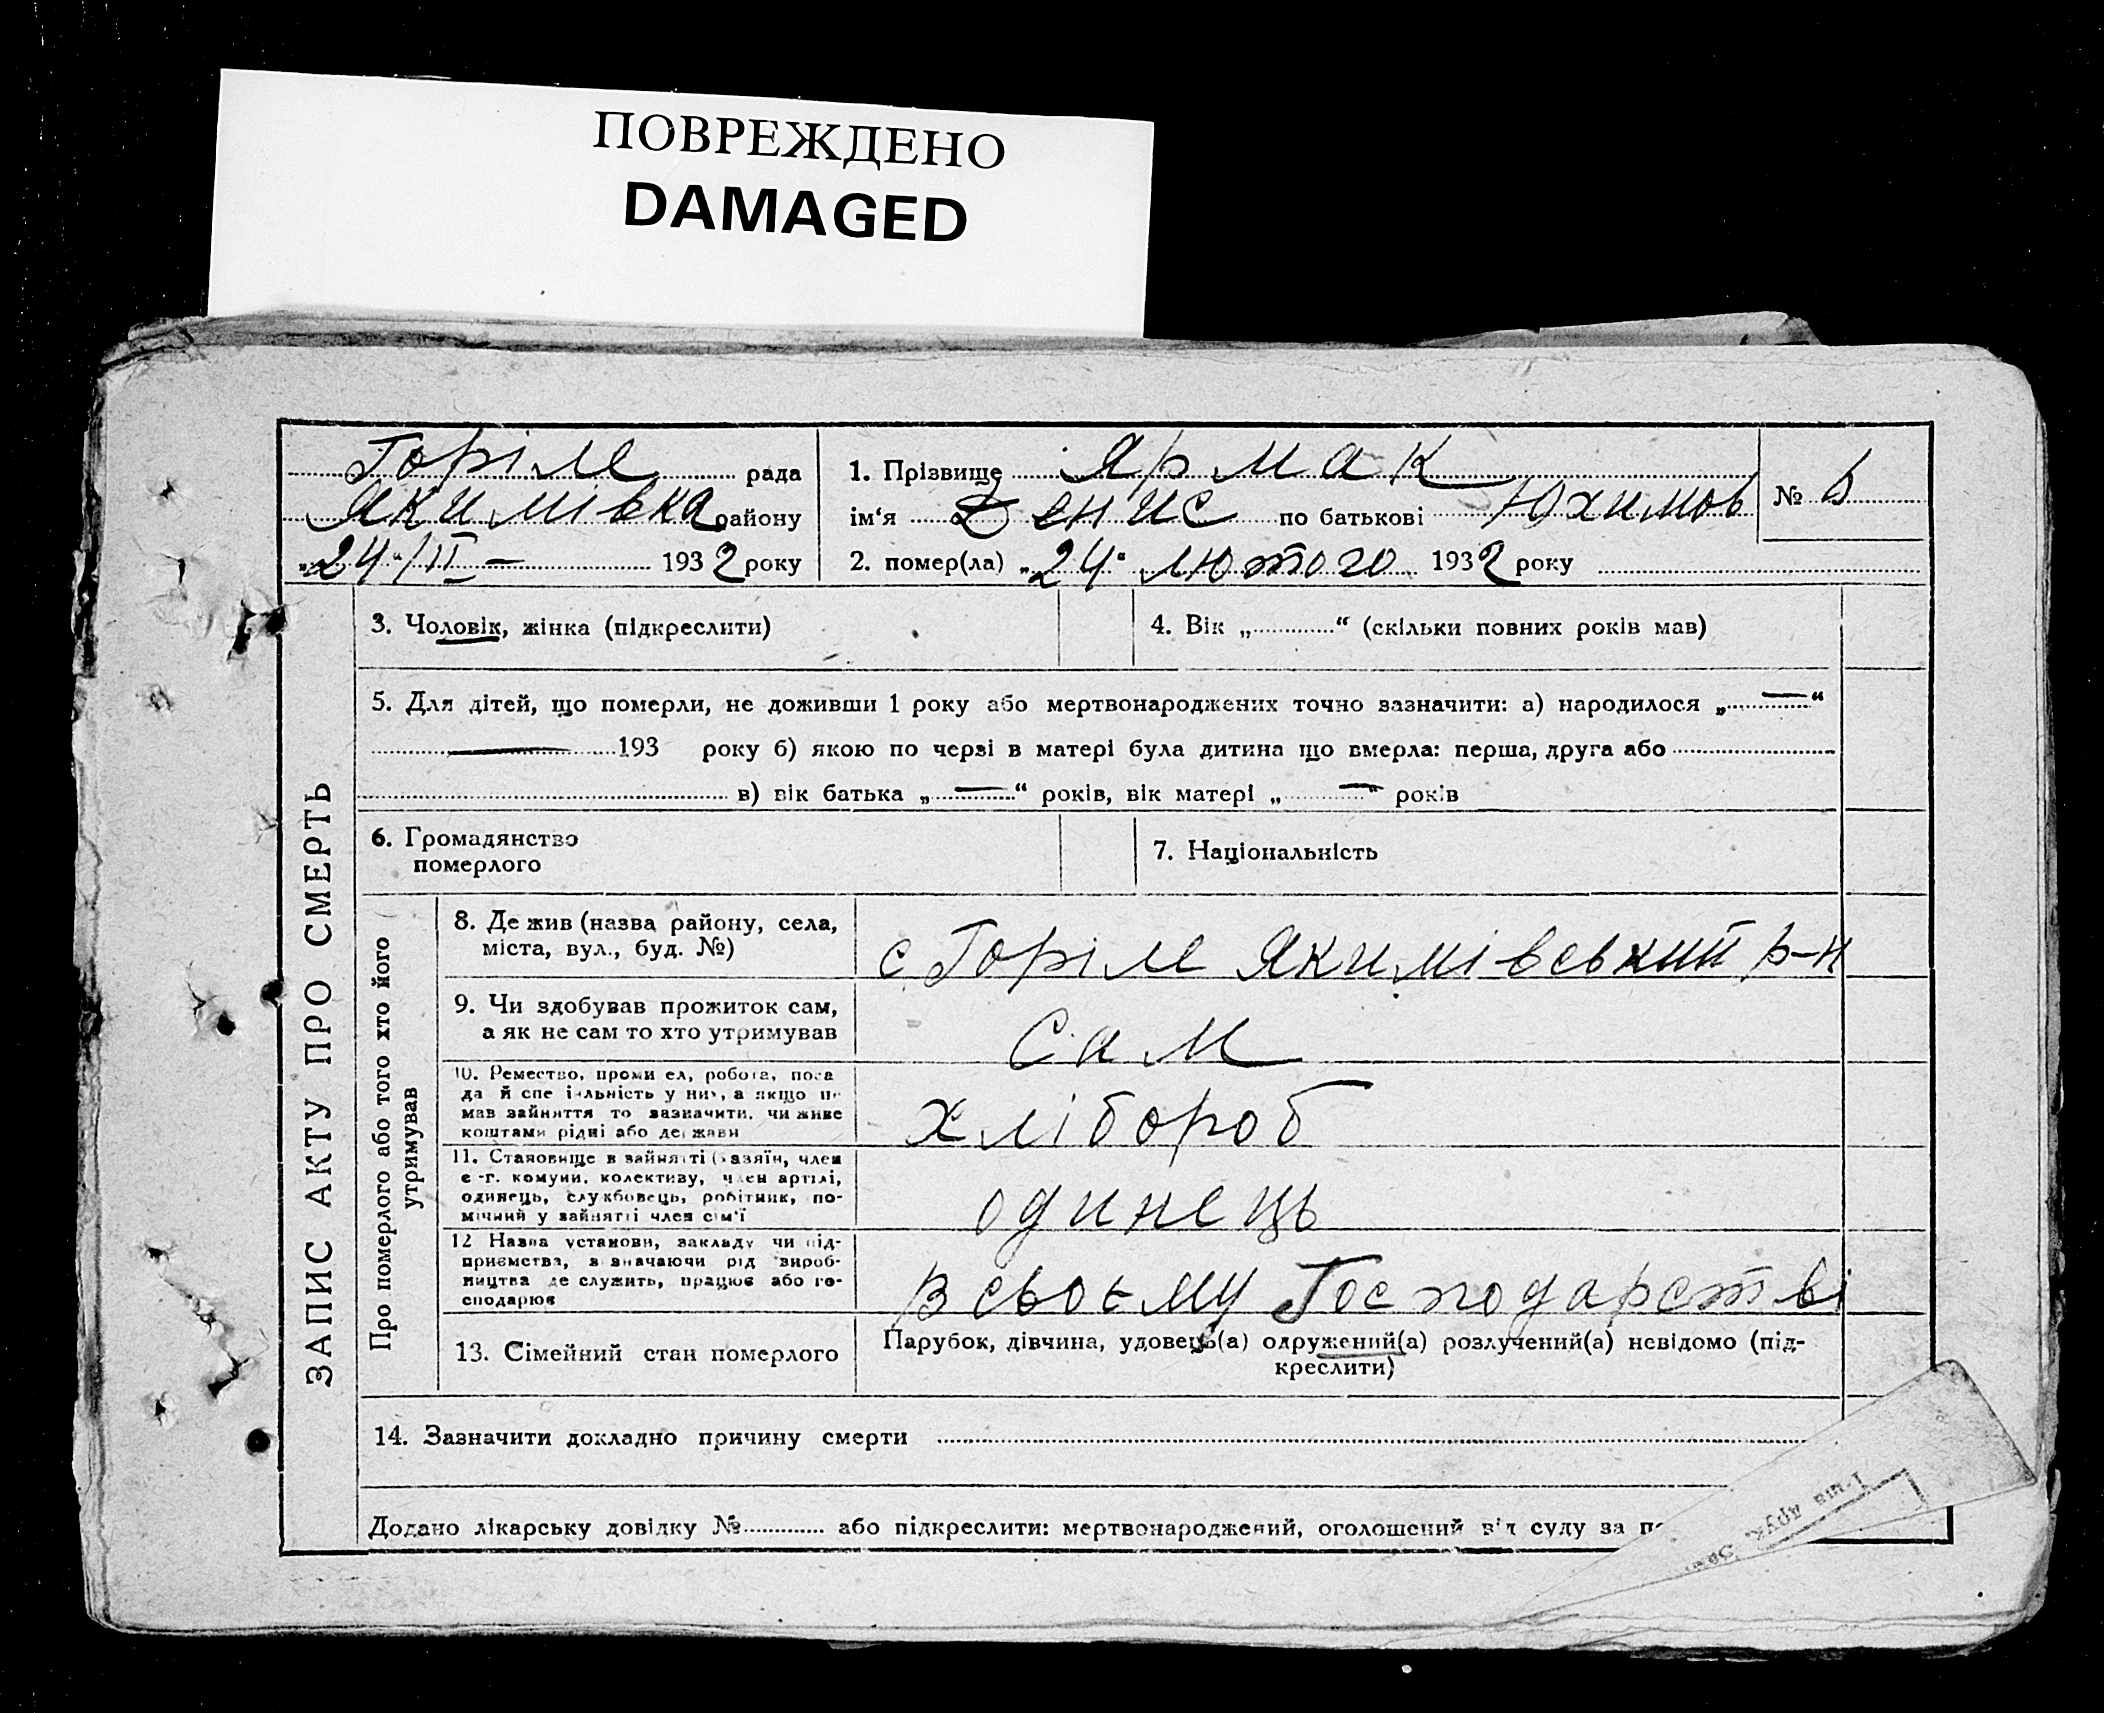 ПОВРЕЖДЕНО
DAMAGED
Горіле рада
Якимівка району
„24“/II – 1932 року
1. Прізвище Ярмак
ім‘я Денис по батькові Юхимов
№
2. помер(ла) „24“ лютого 1932 року
ЗАПИС АКТУ ПРО СМЕРТЬ
3. Чоловік, жінка (підкреслити)
4. Вік „.............“ (скільки повних років мав)
5. Для дітей, що померли, не доживши 1 року або мертвонароджених точно зазначити: а) народилося „—“
— 193 року б) якою по черзі в матері була дитина що вмерла: перша, друга або
в) вік батька „—“ років, вік матері „—“ років
6. Громадянство
померлого
7. Національність
Про померлого або того хто його
утримував
8. Де жив (назва району, села,
міста, вул., буд. №)
с. Горіле Якимівський р-н
9. Чи здобував прожиток сам,
а як не сам то хто утримував
Сам
10. Ремество, проми ел, робота, поса
да й спе іяльність у них, а якщо не
мав зайняття то зазначити, чи живе
коштами рідні або держави
хлібороб
11. Становище в зайнятті (хазяїн, член
с-г. комуни, колективу, член артілі,
одинець, службовець, робітник, по-
мічний у зайнятті член сім‘ї
одинець
12 Назва установи, закладу чи під-
приємства, зазначаючи рід вироб-
ництва де служить, працює або го-
сподарює
в сьоєму Господарстві
13. Сімейний стан померлого
Парубок, дівчина, удовець(а) одружений(а) розлучений(а) невідомо (під-
креслити)
14. Зазначити докладно причину смерти
Додано лікарську довідку № або підкреслити: мертвонароджений, оголошений від суду за по